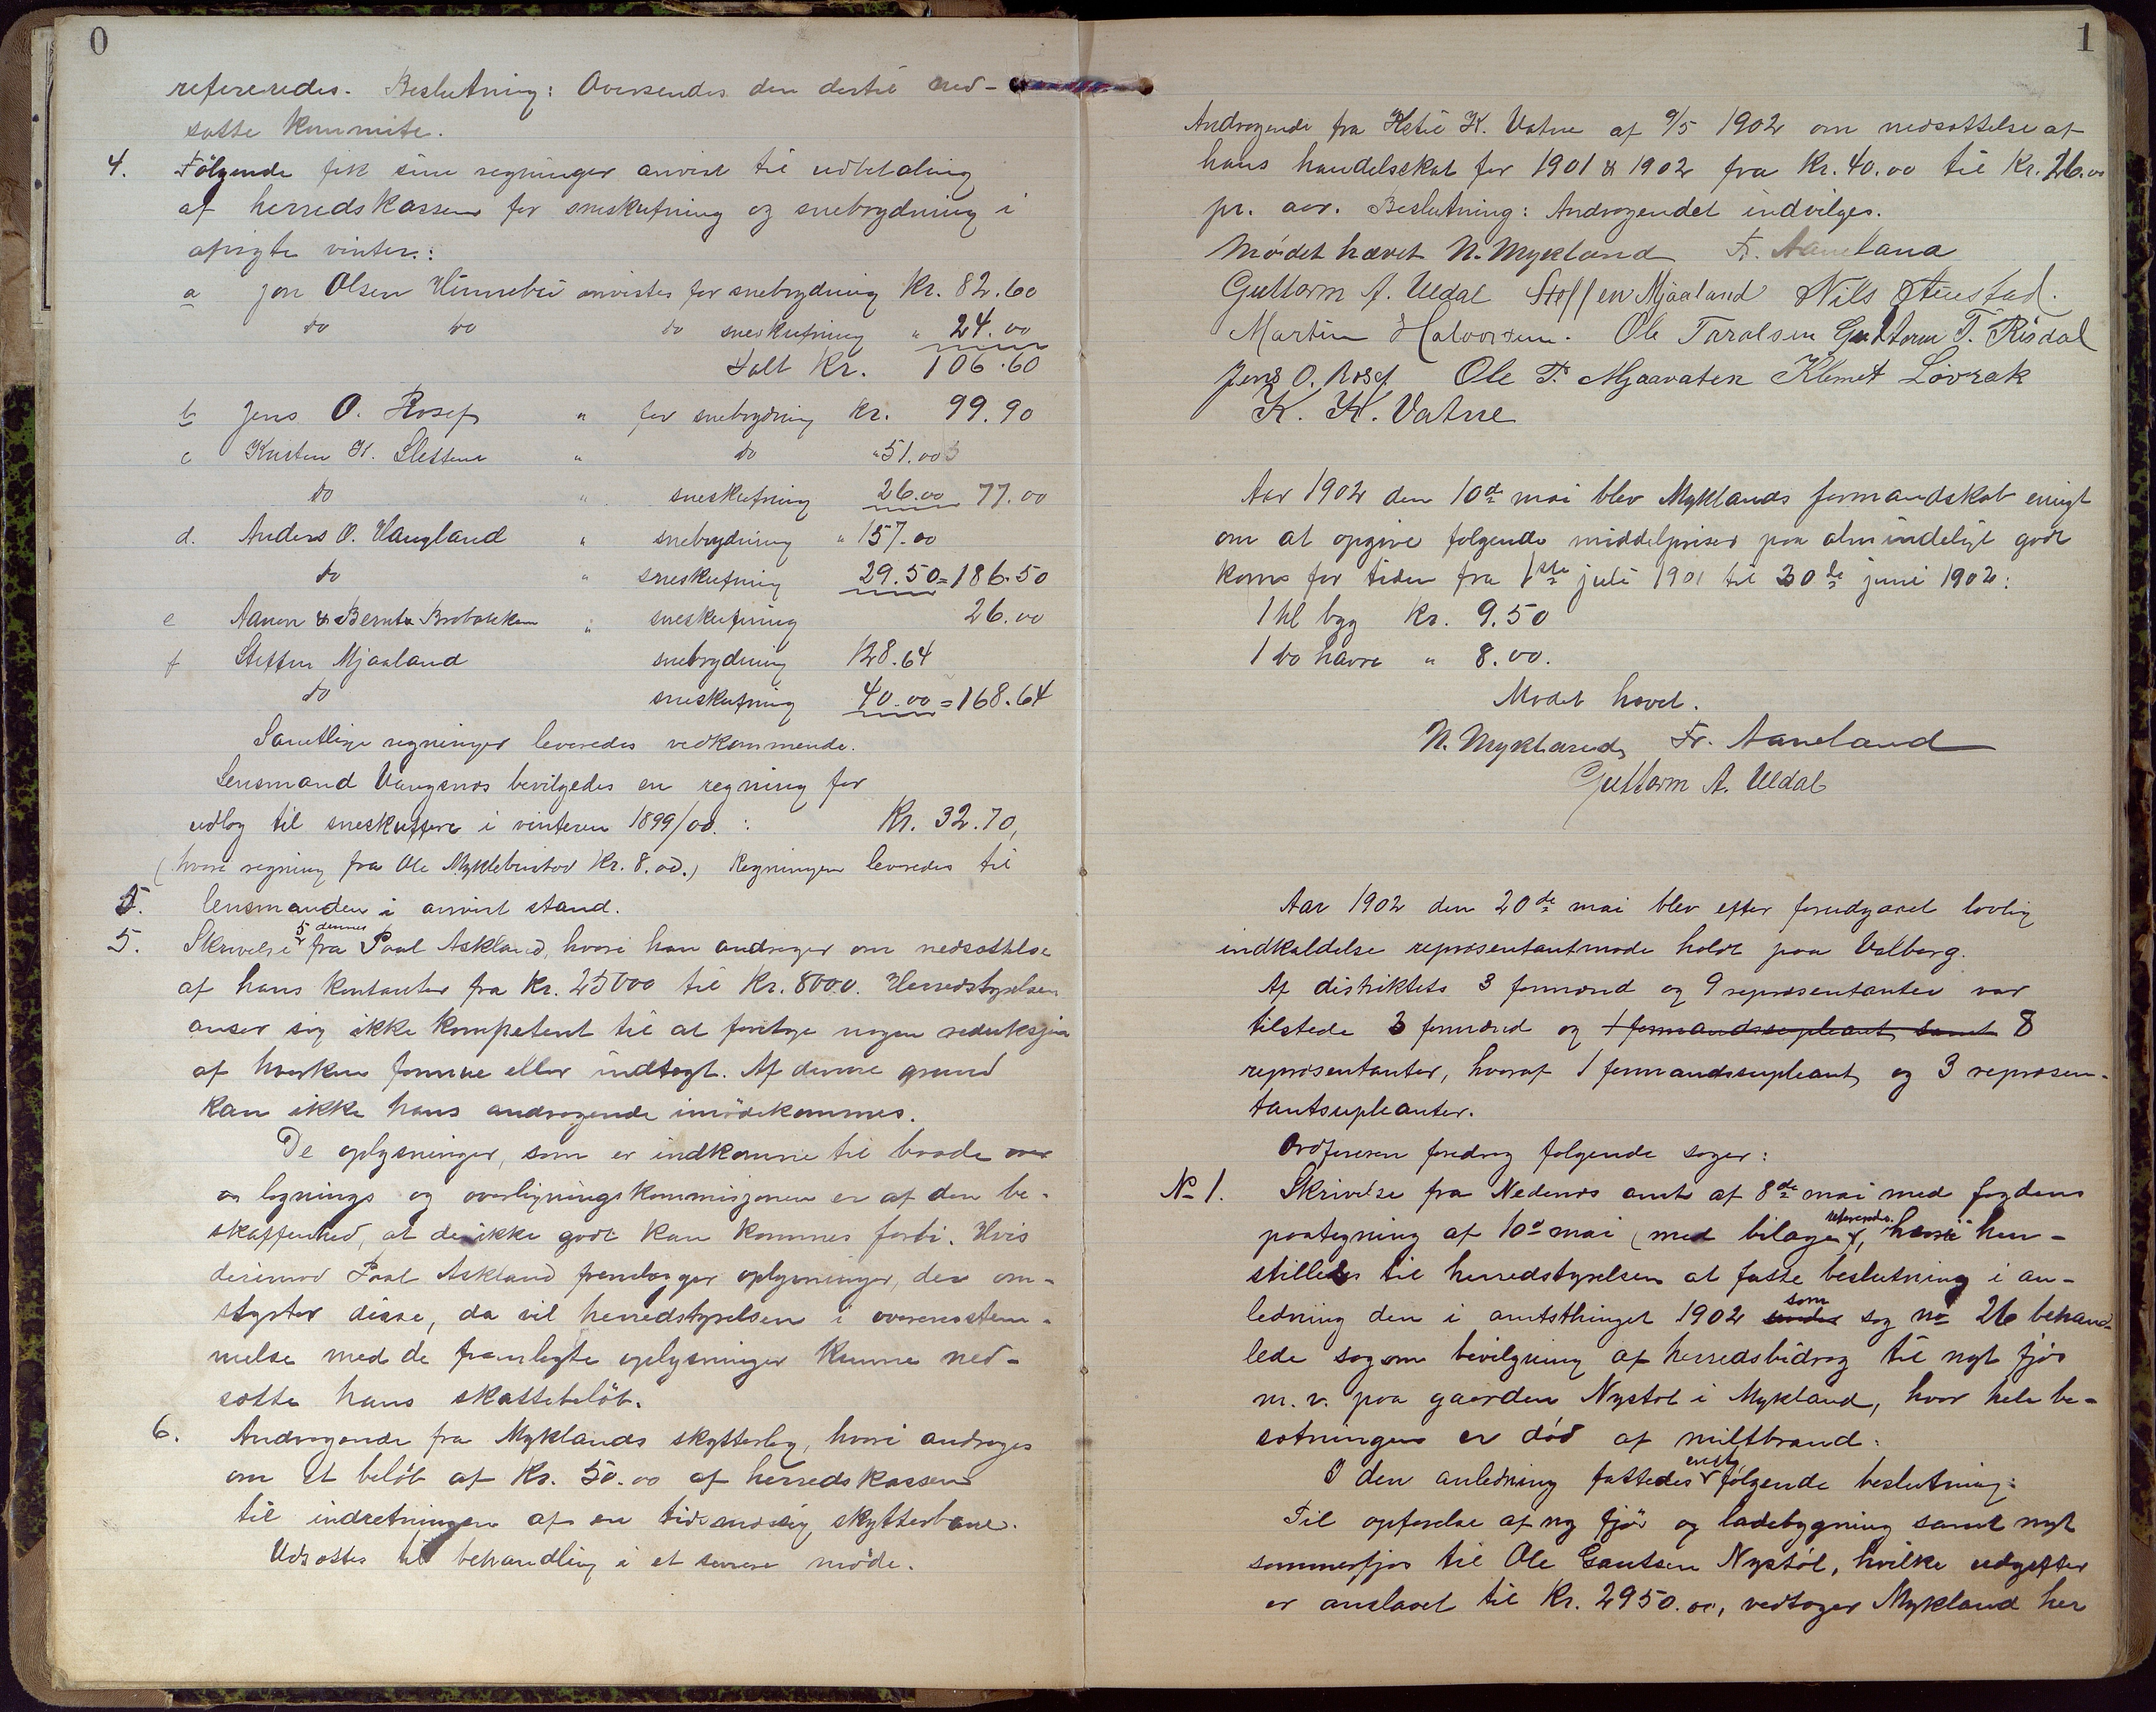 0
refereredes. Beslutning: Oversendes den dertil ned-
satte kommite.
4. Følgende fik sine regninger anvist til udbetaling
af herredskassen for sneskufning og snebrydning i
afvigte vinter:
a Jon Olsen Hinnebu anvistes for snebrydning Kr. 82.60
do do do sneskufning " 24.00
Ialt Kr. 106.60
b Jens O. Rosef " for snebrydning Kr. 99.90
c Kristen K. Slettene " do " 51.00
do " sneskufning 26.00 77.00
d. Anders O. Haugland " snebrydning " 157.00
do " sneskufning 29.50 = 186.50
e Aanon & Bernt Brobakken " sneskufning 26.00
f Steffen Mjaaland snebrydning 128.64
do sneskufning 40.00 = 168.64
Samtlige regninger leveredes vedkommende.
Lensmand Vangsnes bevilgedes en regning for
udlæg til sneskuffere i vinteren 1899/00. : Kr. 32.70,
(hvori regning fra Ole Myklebustad Kr. 8.00.) Regningen leveredes til
lensmanden i anvist stand.
5. Skrivelse fra Paal Askland, hvori han andrager om nedsættelse
af hans kontanter fra Kr. 25000 til Kr. 8000. Herredstyrelsen
anser sig ikke kompetent til at foretage nogen reduksjon
af hverken formue eller indtægt. Af denne grund
kan ikke hans andragende imødekommes.
De oplysninger, som er indkomne til baade
lignings og overligningskommisjonen er af den be-
skaffenhed, at de ikke godt kan kommes forbi. Hvis
derimod Paal Askland fremlægger oplysninger, der om-
styrter disse, da vil herredstyrelsen i overensstem-
melse med de fremlagte oplysninger kunne ned-
sætte hans skattebeløb.
6. Andragende fra Myklands skytterlag, hvori andrages
om et beløb af Kr. 50.00 af herredskassen
til indretningen af en tidsmæssig skytterbane.
Udsættes til behandling i et senere møde.
1
Andragende fra Ketil K. Vatne af 9/5 1902 om nedsættelse af
hans handelsskat for 1901 & 1902 fra Kr. 40.00 til Kr. 26.00
pr. aar. Beslutning: Andragendet indvilges.
Mødet hævet N. Mykland Fr. Aaneland
Guttorm A. Uldal Steffen Mjaaland Nils Austad.
Martin Halvorsen. Ole Taralsen Guttorm T. Risdal
Jens O. Rosef Ole T. Mjaavaten Klemet Løvrak
K. K. Vatne
Aar 1902 den 10de mai blev Myklands formandskab enigt
om at opgive følgende middelpriser paa almindeligt godt
korn for tiden fra 1ste juli 1901 til 30te juni 1902:
1 hl byg Kr. 9.50
1 do havre " 8.00.
Mødet hævet.
N. Mykland Fr. Aaneland
Guttorm A. Uldal
Aar 1902 den 20de mai blev efter forudgaaet lovlig
indkaldelse repræsentantmøde holdt paa Valberg.
Af distriktets 3 formænd og 9 repræsentanter var
tilstede 3 formænd og 1 formandssupleant, samt 8
repræsentanter, hvoraf 1 formandssupleant og 3 repræsen-
tantsupleanter.
Ordføreren foredrog følgende sager:
No 1. Skrivelse fra Nedenes amt af 8de mai med fogdens
paategning af 10de mai (med bilage), refereredes. hvori hen-
stilledes til herredstyrelsen at fatte beslutning i an-
ledning den i amtsthinget 1902 som sag no 26 behand-
lede sag om bevilgning af herredsbidrag til nyt fjøs
m. v. paa gaarden Nystøl i Mykland, hvor hele be-
sætningen er død af miltbrand.
I den anledning fattedes enst. følgende beslutning:
Til opførelse af ny fjøs og ladebygning samt nyt
sommerfjøs til Ole Gautsen Nystøl, hvilke udgifter
er anslaaet til Kr. 2950.00, vedtager Mykland her